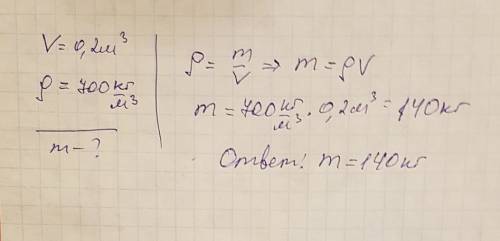 V = 0,2 м³
ρ = 700 кг/м³
m – ?
ρ = m/V ⇒ m = ρV
m = 700 кг/м³ · 0,2 м³ = 140 кг
Ответ: m = 140 кг